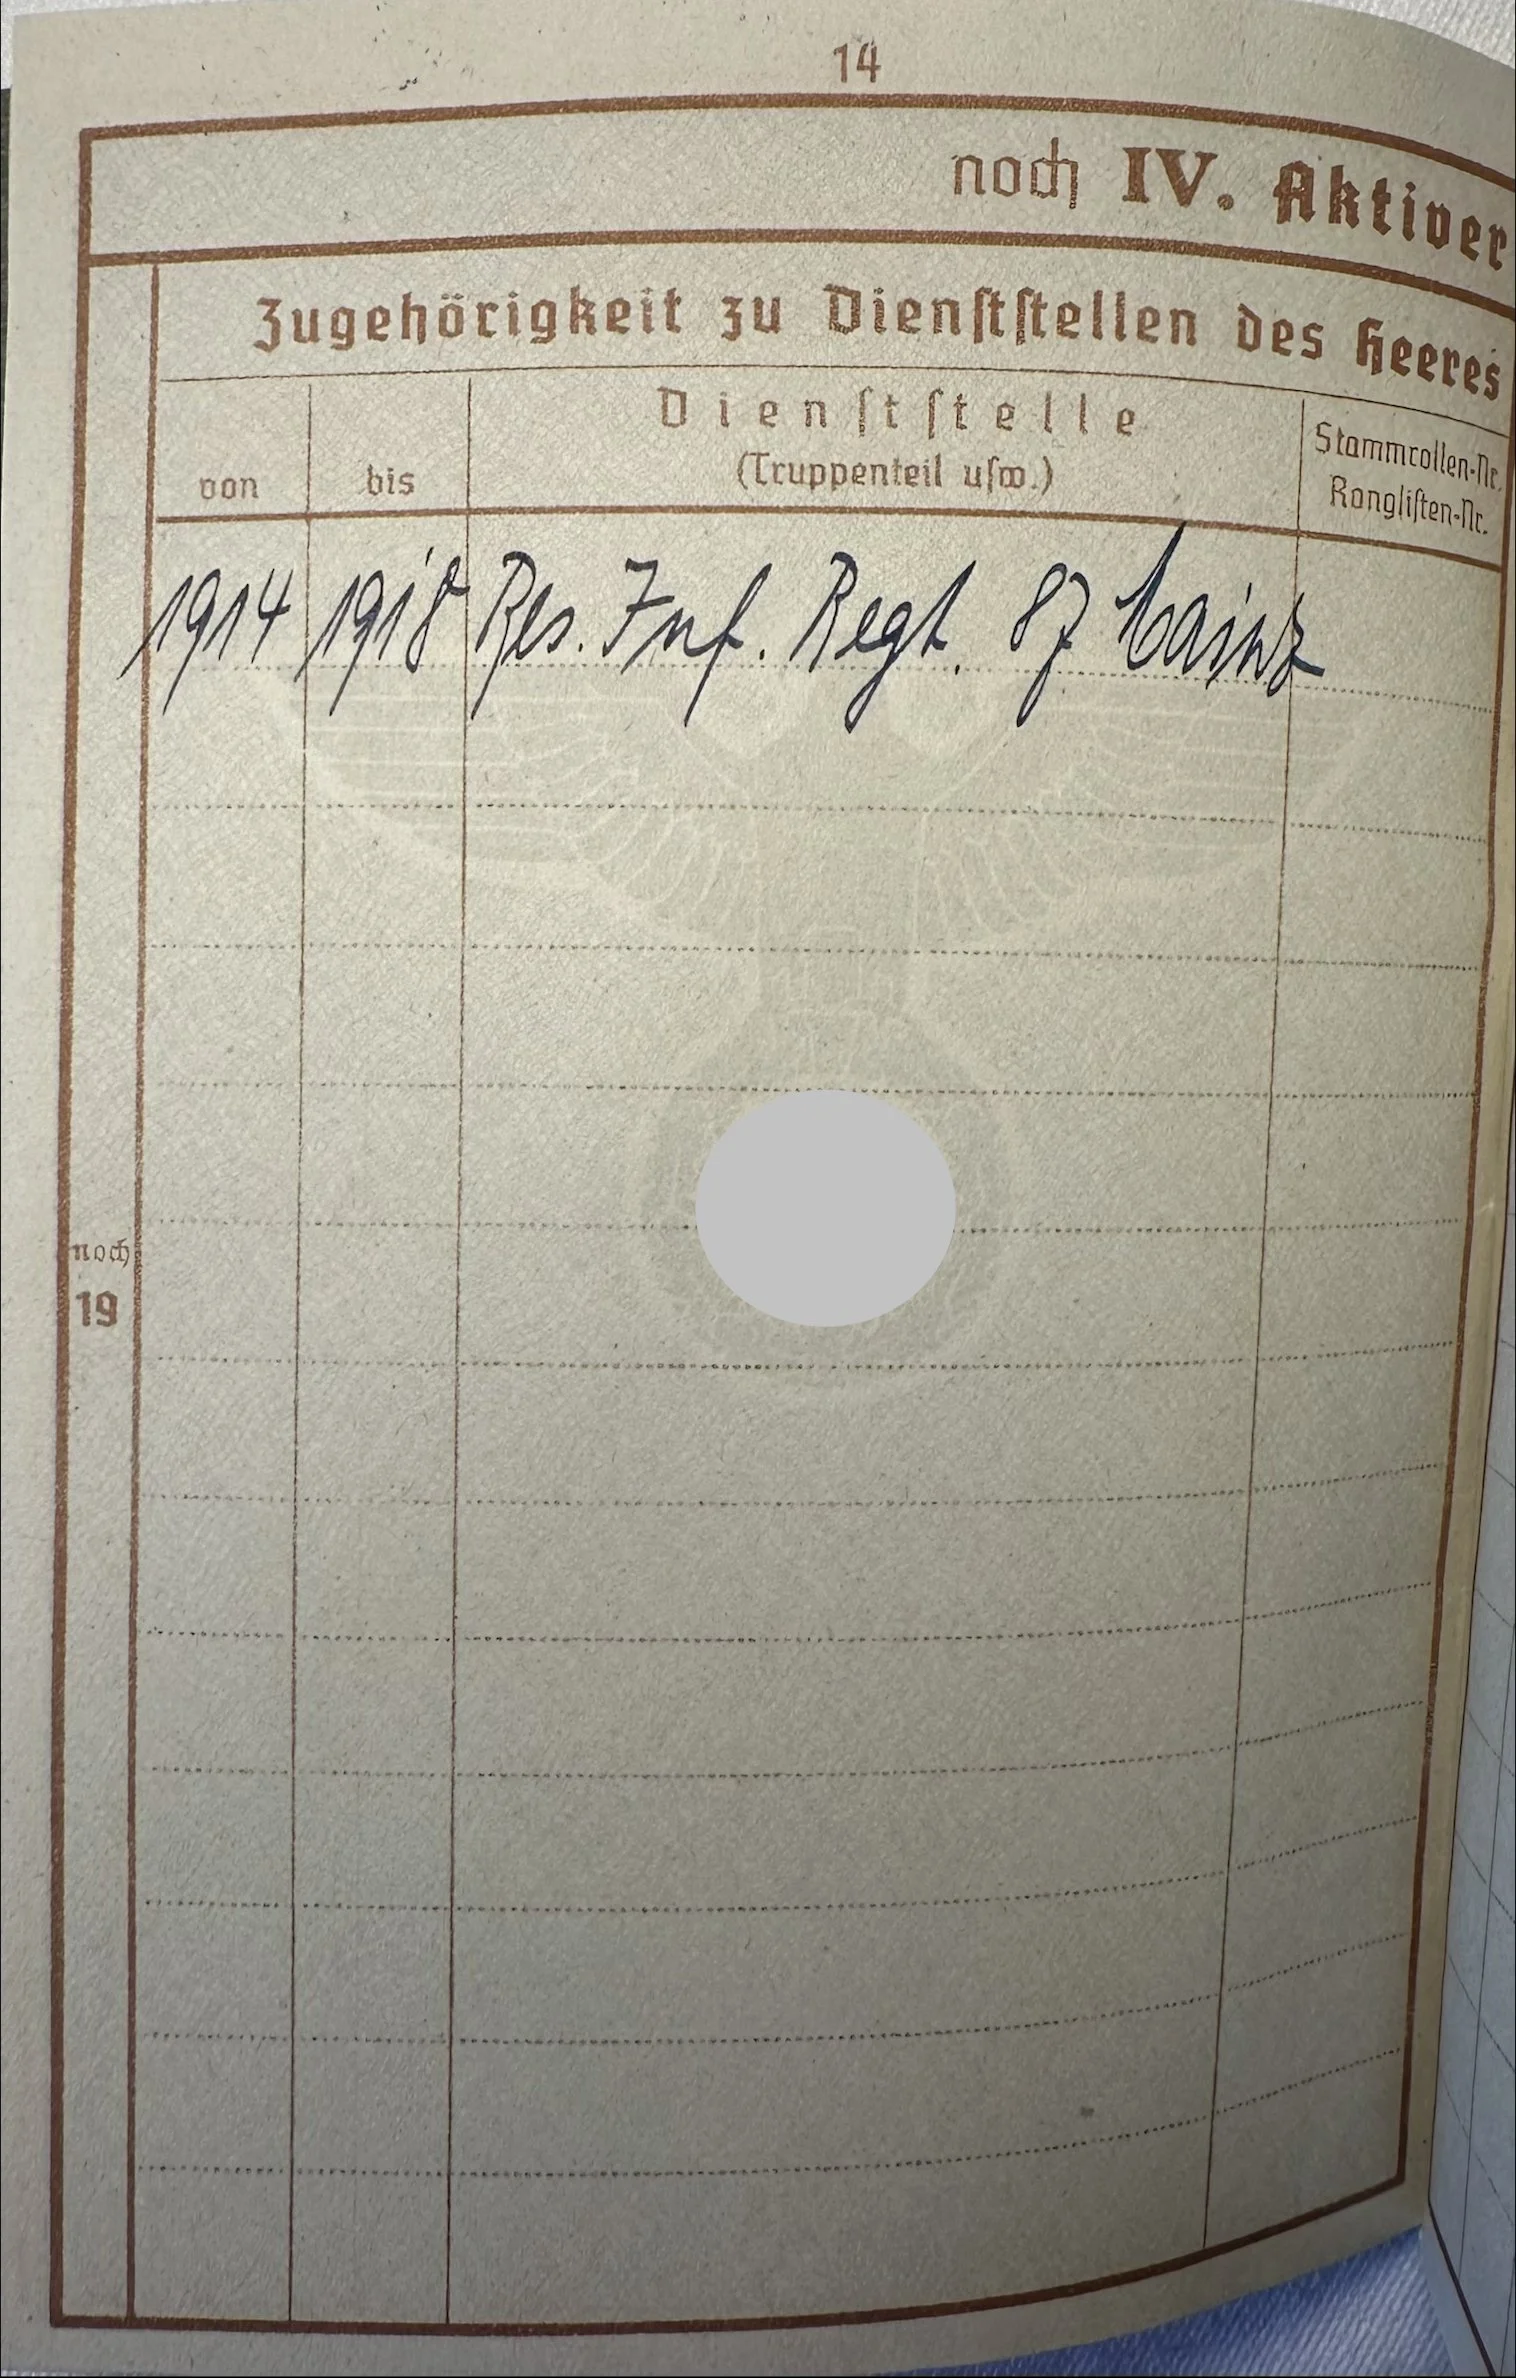 14
noch IV. Aktiver
Zugehörigkeit zu Dienststellen des Heeres
von
bis
Dienststelle
(Truppenteil usw.)
Stammrollen-Nr.
Ranglisten-Nr.
1914 1918 Res. Inf. Regt. 87 Mainz
noch
19